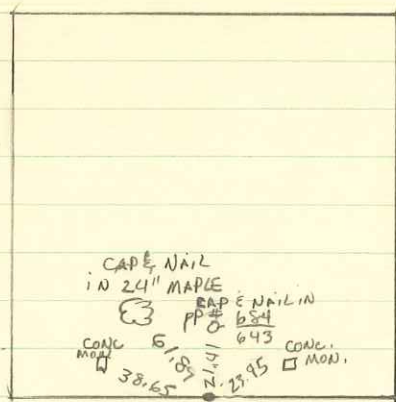 CAP & NAIL
IN 24" MAPLE
CAP & NAIL IN
PP # 684
643
CONC
MON.
61.89
38.65
21.41
23.95
CONC.
MON.